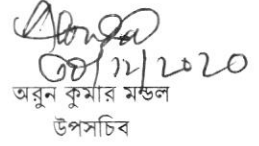 ০৮/১২/২০২০
অরুন কুমার মন্ডল
উপসচিব